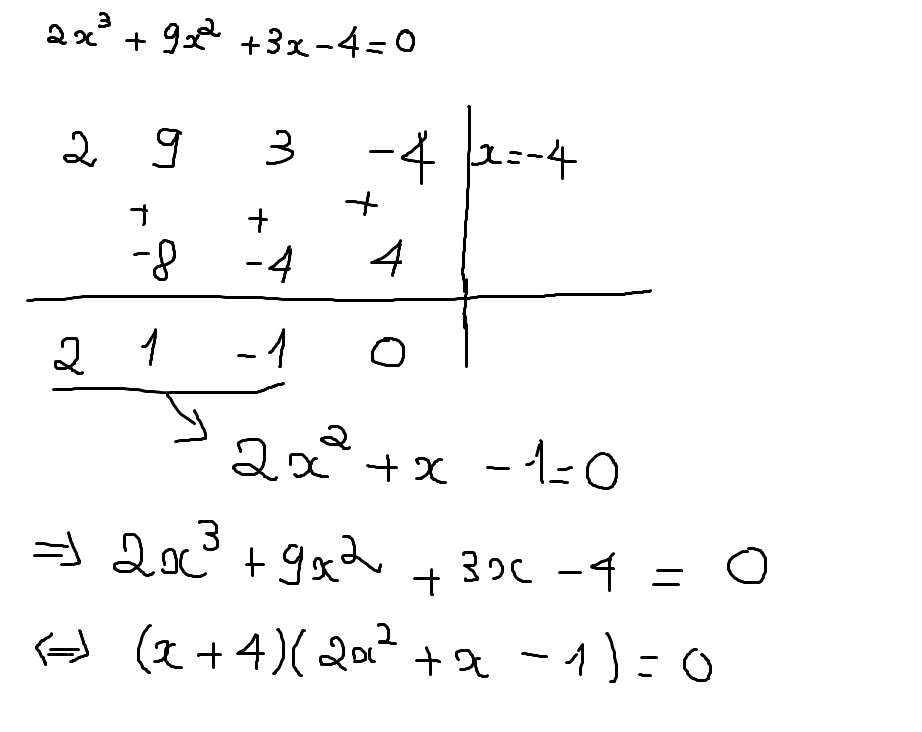 2x³ + 9x² + 3x - 4 = 0
2 9 3 -4 x = -4
+ + +
-8 -4 4
2 1 -1 0
2x² + x - 1 = 0
⇒ 2x³ + 9x² + 3x - 4 = 0
⇔ (x + 4)(2x² + x - 1) = 0